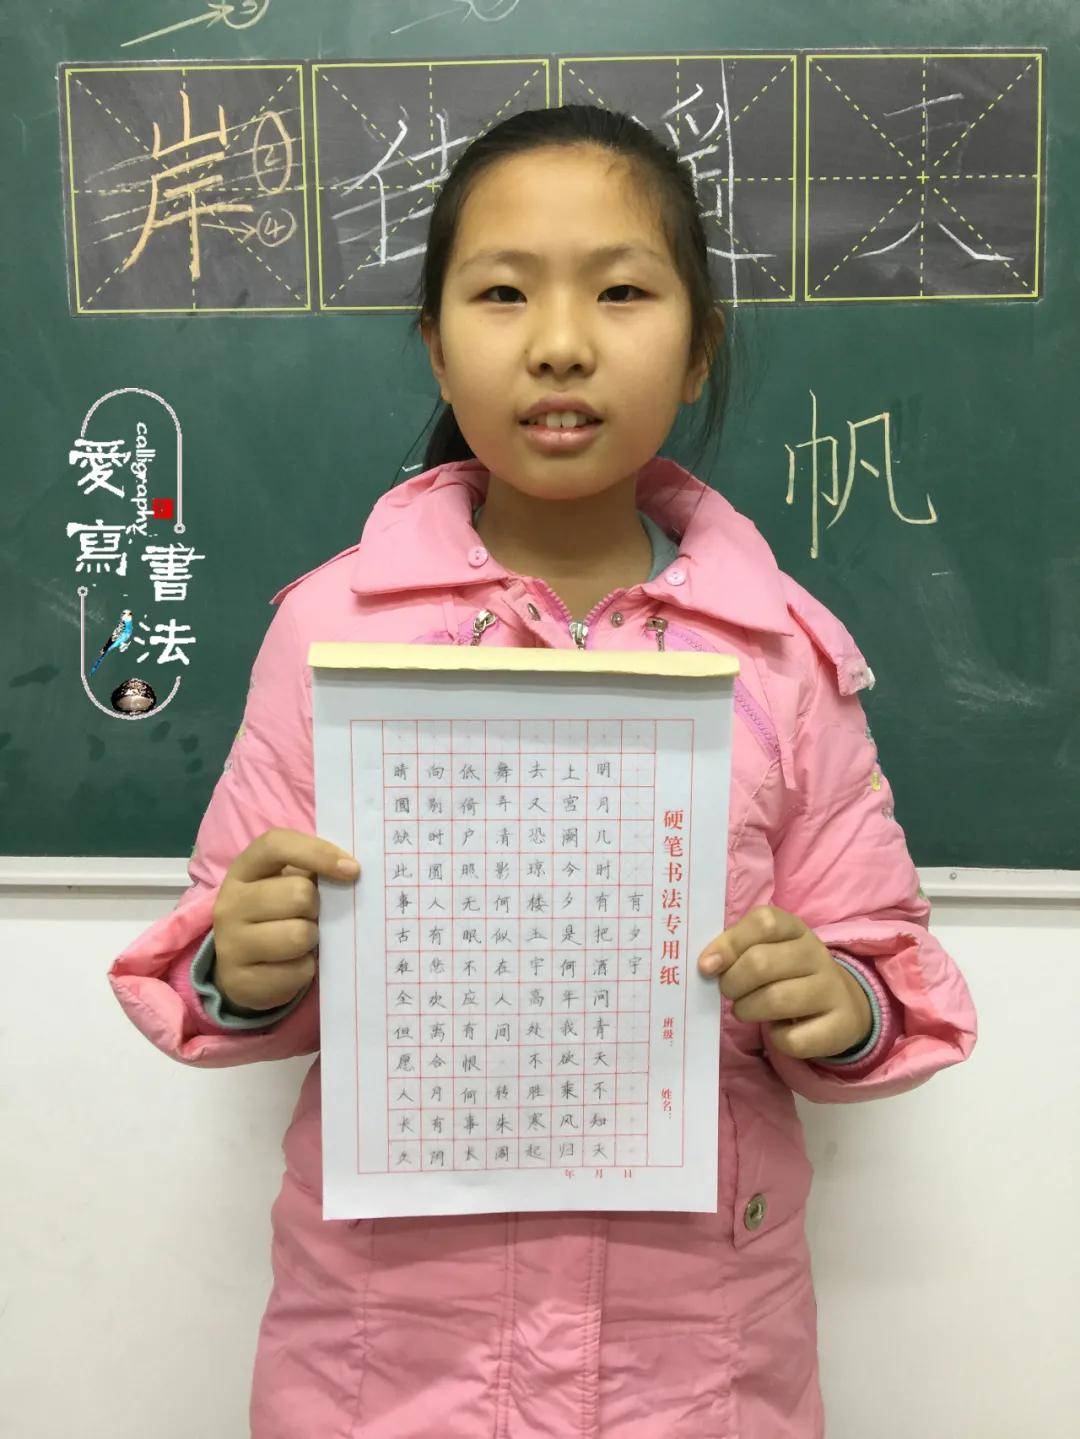 ③
岸
②
④
帆
愛寫
書法
calligraphy
硬笔书法专用纸
班级：
姓名：
有夕宇
明月几时有把酒问青天不知天
上宫阙今夕是何年我欲乘风归
去又恐琼楼玉宇高处不胜寒起
舞弄清影何似在人间 转朱阁
低倚户照无眠不应有恨何事长
向别时圆人有悲欢离合月有阴
晴圆缺此事古难全但愿人长久
年 月 日